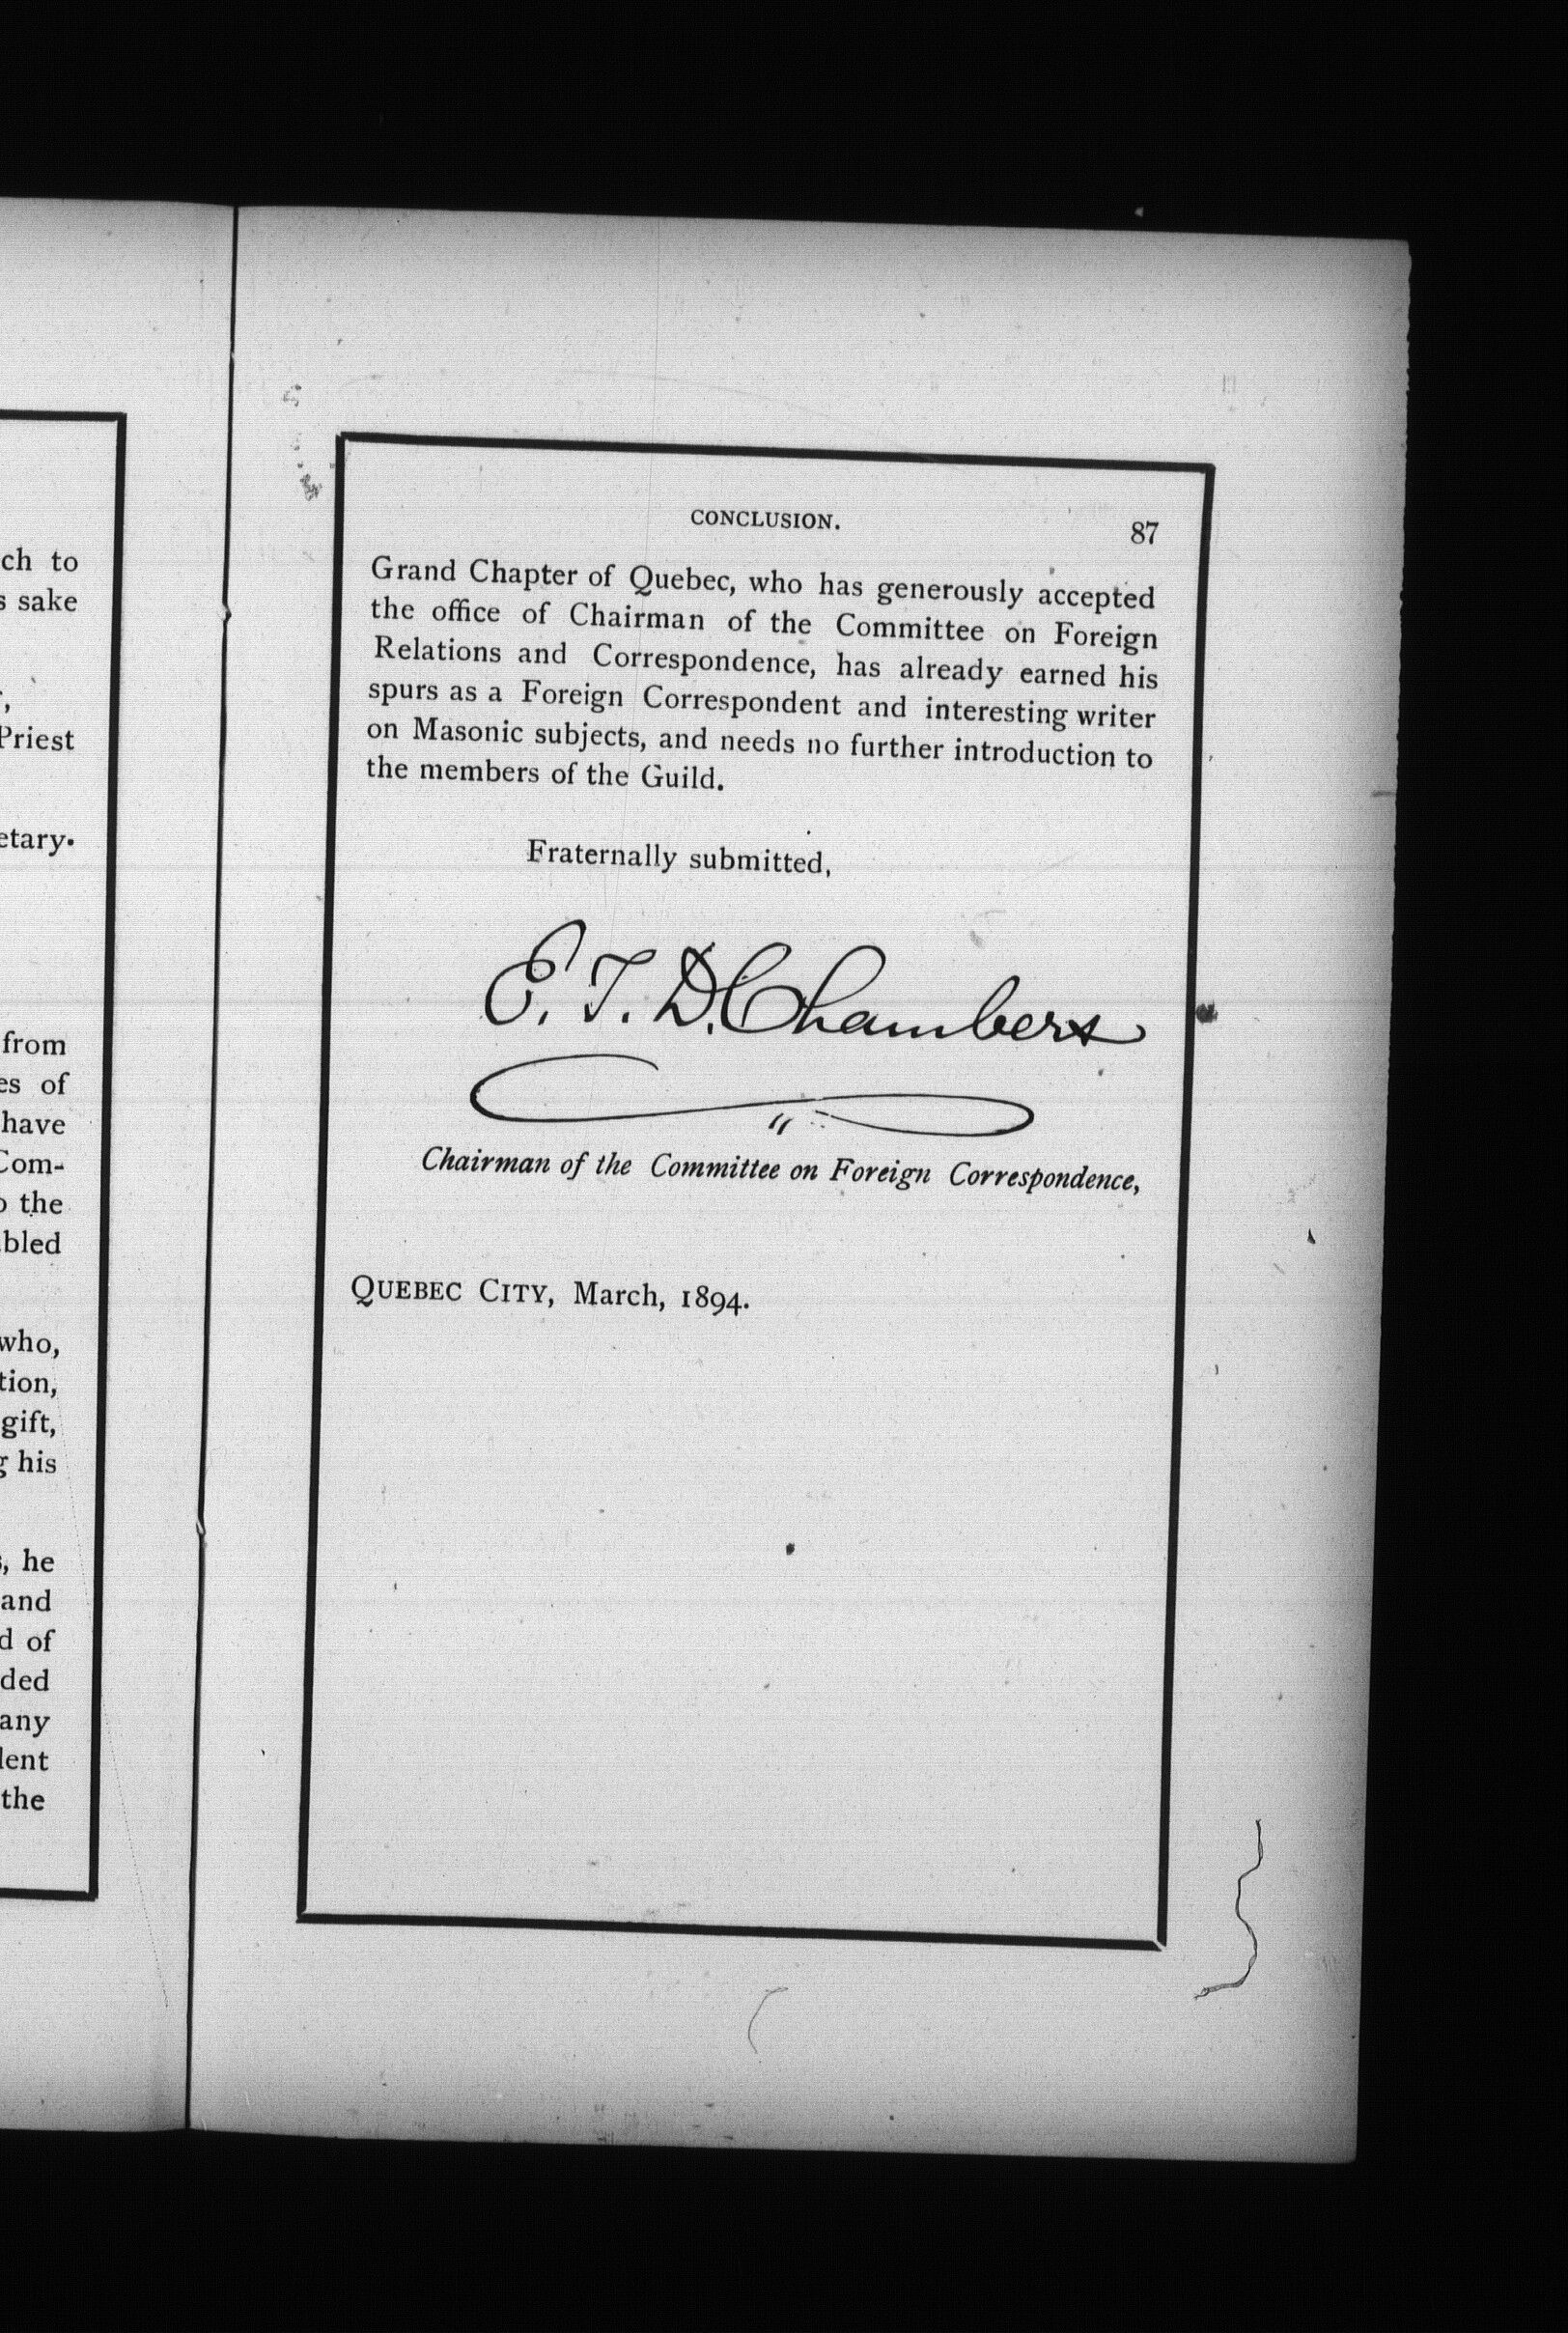 ch to
sake
Priest
etary.
from
es of
have
Com-
the
bled
who,
tion,
gift,
his
he
and
of
ded
any
dent
the
CONCLUSION. 87
Grand Chapter of Quebec, who has generously accepted
the office of Chairman of the Committee on Foreign
Relations and Correspondence, has already earned his
spurs as a Foreign Correspondent and interesting writer
on Masonic subjects, and needs no further introduction to
the members of the Guild.
Fraternally submitted,
E. T. D. Chambers
Chairman of the Committee on Foreign Correspondence,
QUEBEC CITY, March, 1894.